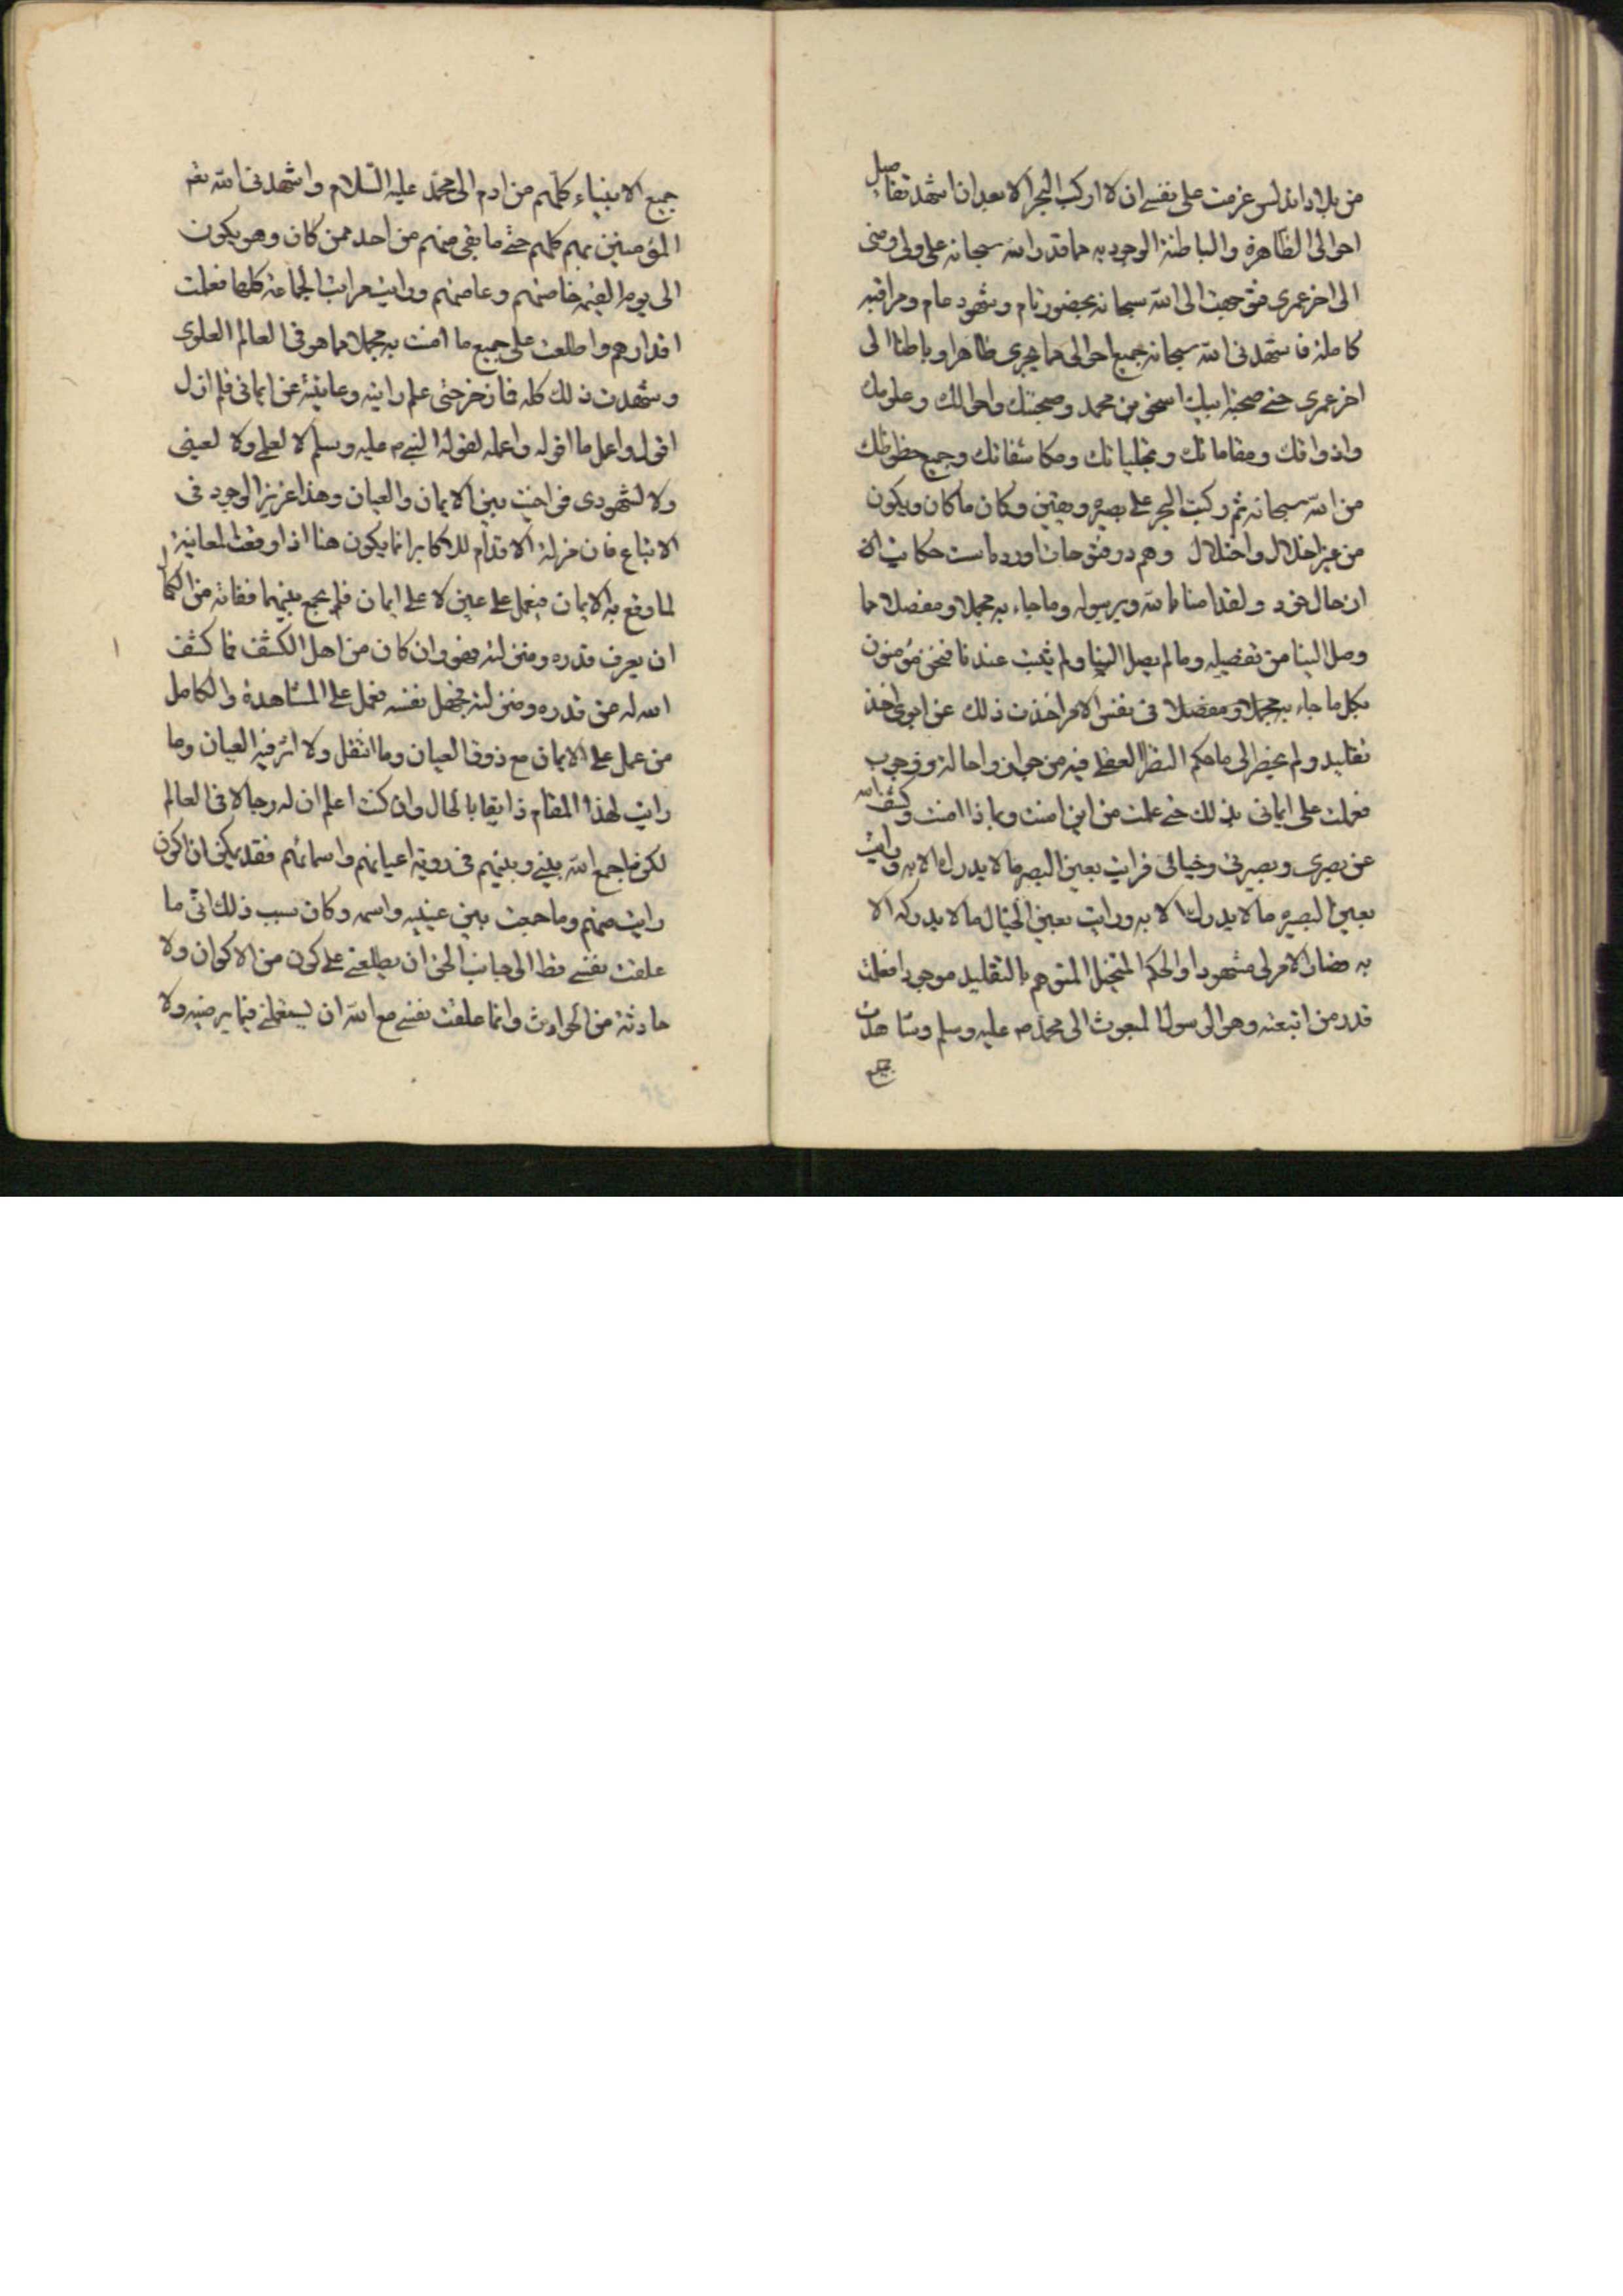 من بلاد اندلس عزمت على نفسى ان لا اركب البحر الا بعد ان اشهد تفاصيل
احوالى الظاهرة والباطنة الوجوديه مما قدر الله سبحانه على ولى ومنى
الى اخر عمرى فتوجهت الى الله سبحانه بحضور تام وشهود عام ومراقبه
كاملة فاشهدنى الله سبحانه جميع احوالى مما يجرى ظاهرا وباطنا الى
اخر عمرى حتى صحبة ابيك اسحق بن محمد وصحبتك واحوالك وعلومك
واذواقك ومقاماتك وتجلياتك ومكاشفاتك وجميع حظوظك
من الله سبحانه ثم ركبت البحر على بصيرة ويقين وكان ما كان ويكون
من غير اخلال واختلال وهم در فتوحات اورده است حكايت از
ان حال خود ولقد امنا بالله وبرسوله وما جاء به مجملا ومفصلا مما
وصل الينا من تفصيله وما لم يصل الينا ولم يثبت عندنا فنحن مؤمنون
بكل ما جاء به مجملا ومفصلا فى نفس الامر اخذت ذلك عن ابوى اخذ
تقليد ولم يخطر لى ما حكم النظر العقلى فيه من جواز واحالة ووجوب
فعملت على ايمانى بذلك حتى علمت من اين امنت وبماذا امنت وكشف الله
عن بصرى وبصيرتى وخيالى فرايت بعين البصر ما لا يدرك الا به ورايت
بعين البصيره ما لا يدرك الا به ورايت بعين الخيال ما لا يدركه الا
به فصار الامر لى مشهودا والحكم المتخيل المتوهم بالتقليد موجودا فعلمت
قدر من اتبعته وهو الرسول المبعوث الى محمد صم عليه وسلم وشاهدت
جميع
جميع الانبياء كلهم من ادم الى محمد عليه السلام واشهدنى الله تعم
المؤمنين بهم كلهم حتى ما بقى منهم من احد ممن كان وهو يكون
الى يوم القيمه خاصتهم وعامتهم ورايت مراتب الجماعة كلها فعلمت
اقدارهم واطلعت على جميع ما امنت به مجملا مما هو فى العالم العلوى
وشهدت ذلك كله فما زحزحنى علم رايته وعاينته عن ايمانى فلم ازل
اقول واعمل ما اقوله واعمله لقول النبى صم عليه وسلم لا لعلمى ولا لعينى
ولا لشهودى فواخيت بين الايمان والعيان وهذا عزيز الوجود فى
الاتباع فان مزلة الاقدام للاكابر انما يكون هنا اذا وقعت المعاينة
لما وقع به الايمان فيعمل على عين لا على ايمان فلم يجمع بينهما ففاته من الكمال
ان يعرف قدره ومنزلته فهو وان كان من اهل الكشف فما كشف
الله له عن قدره ومنزلته فجهل نفسه فعمل على المشاهدة والكامل
من عمل على الايمان مع ذوق العيان وما انتقل ولا اثر فيه العيان وما
رايت لهذا المقام ذايقا بالحال وان كنت اعلم ان له رجالا فى العالم
لكن ما جمع الله بينى وبينهم فى روية اعيانهم واسمائهم فقد يمكن ان اكون
رايت منهم وما جمعت بين عينيه واسمه وكان سبب ذلك انى ما
علقت نفسى قط الى جانب الحق ان يطلعنى على كون من الاكوان ولا
حادثة من الحوادث وانما علقت نفسى مع الله ان يستعملنى فيما يرضيه ولا